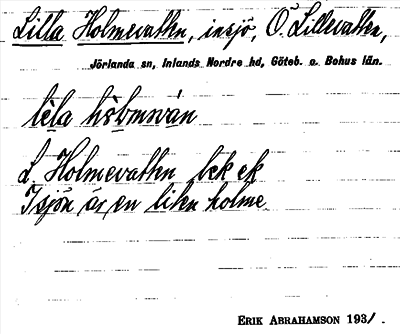 Lilla Holmevattn, insjö, Ö. Lillevattn,
Jörlanda sn, Inlands Nordre hd, Göteb. o. Bohus län.
lela
L. Holmevattn lek ek
I sjön är en liten holme
ERIK ABRAHAMSON 193/ .